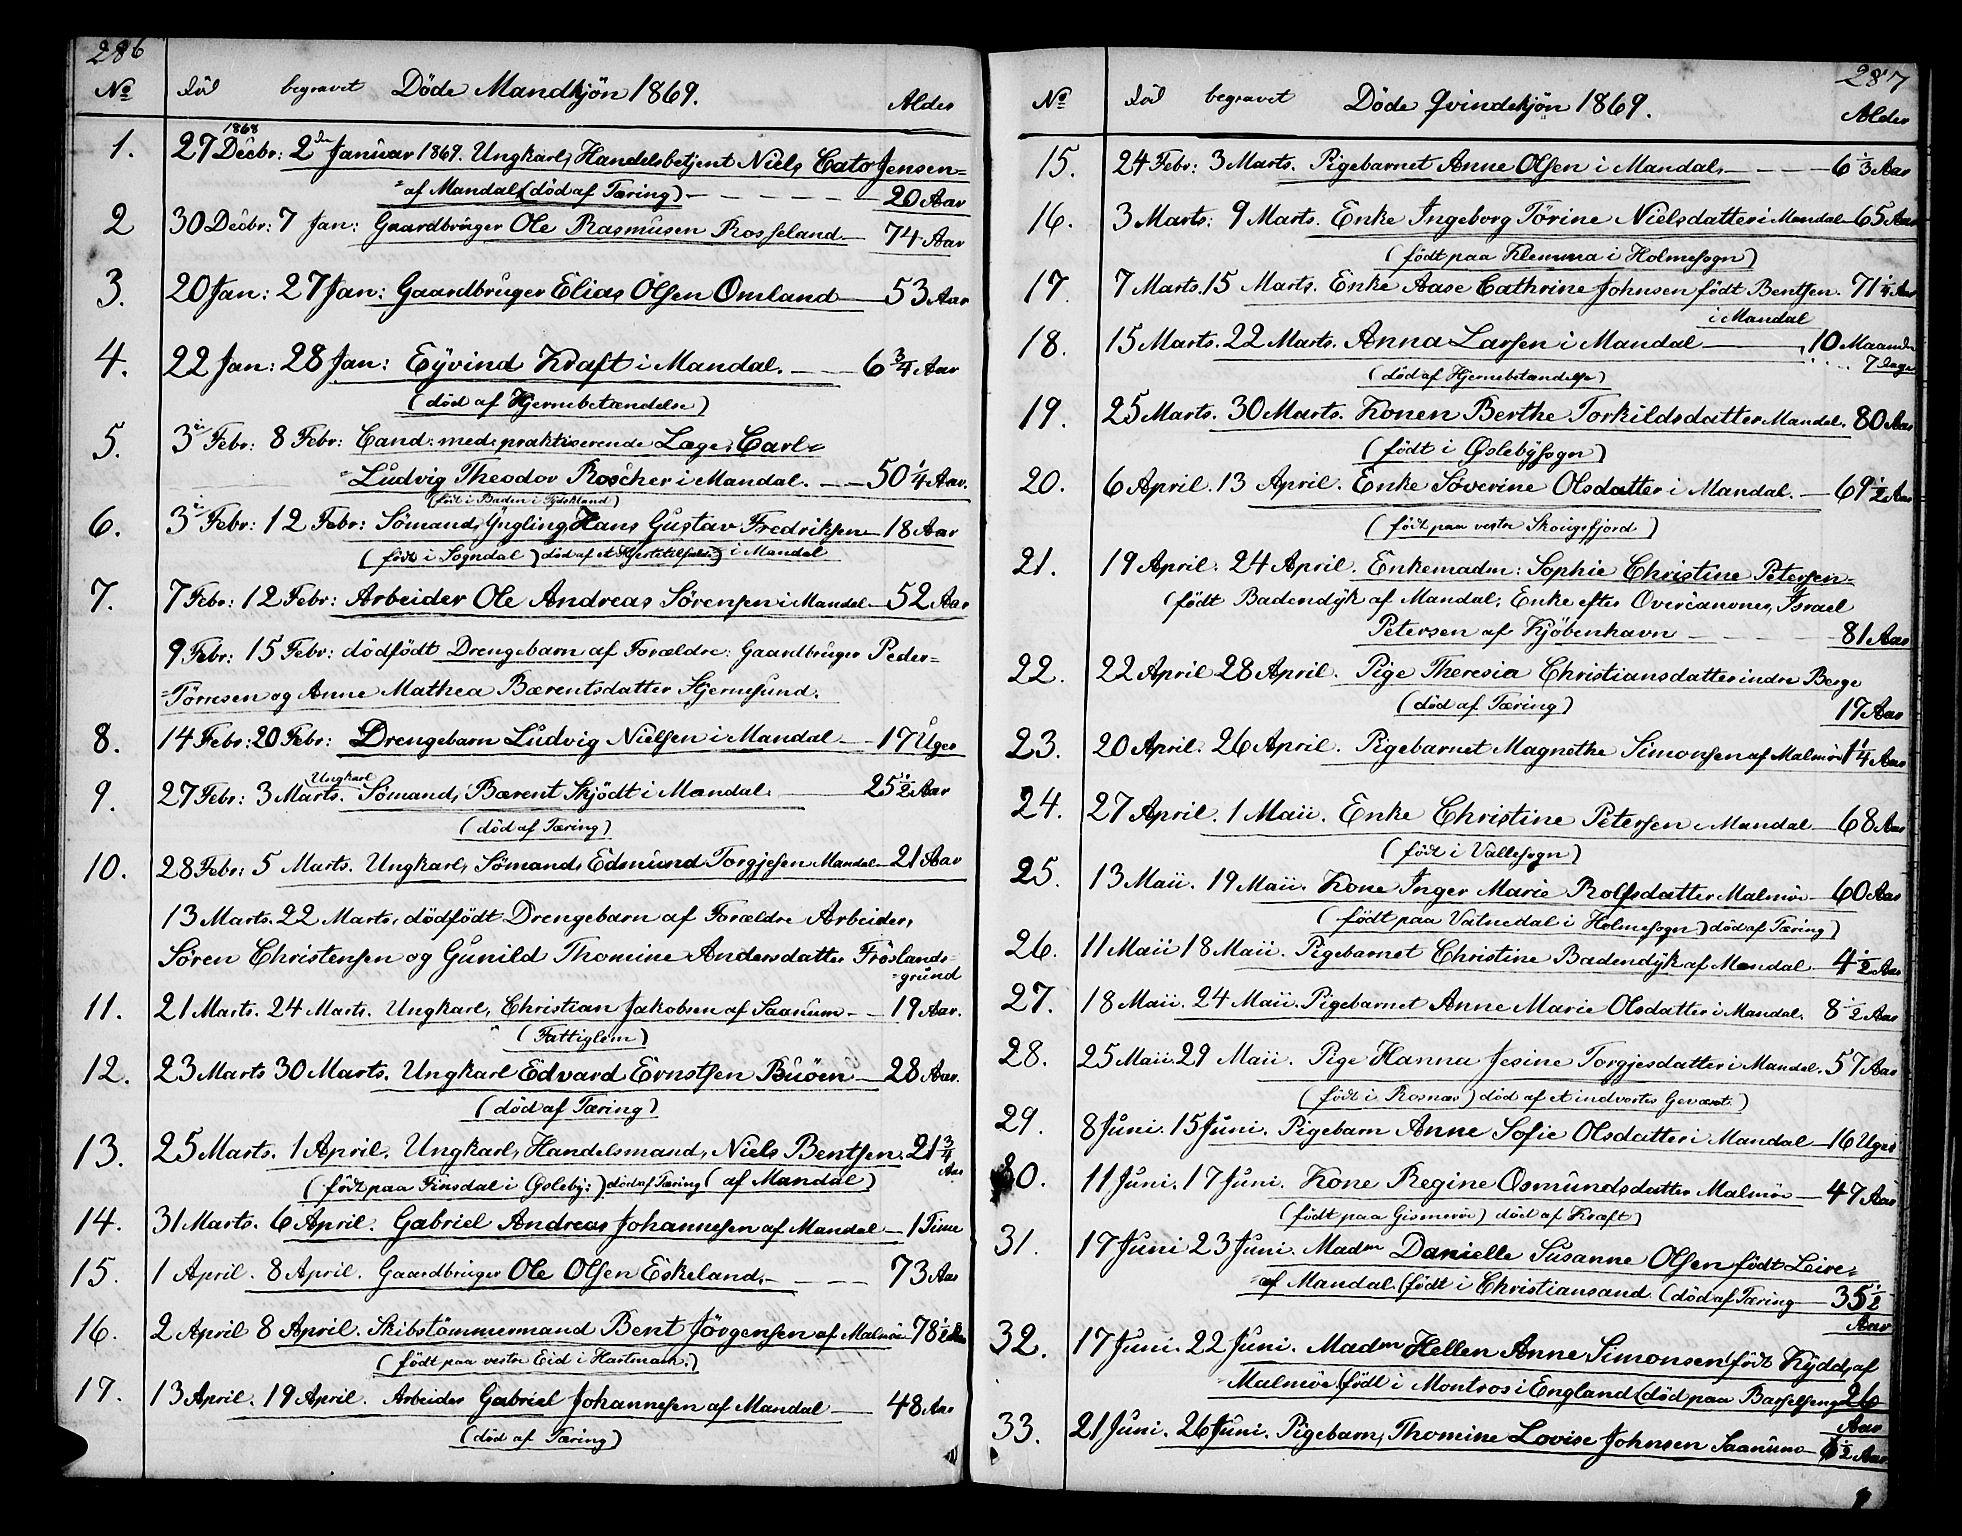 286
No död begravet Döde Mandkjön 1869. Alder
1868
1. 27 Decbr: 2den Januar 1869. Ungkarl, Handelsbetjent Niels Cato Jensen=
=af Mandal, (död af Tæring) 20 Aar
2 30 Decbr: 7 Jan: Gaardbruger Ole Rasmusen Rosseland 74 Aar
3. 20 Jan: 27 Jan: Gaardbruger Elias Olsen Omland 53 Aar
4. 22 Jan: 28 Jan: Eyvind Kraft i Mandal. 6 3/4 Aar
(död af Hjernebetændelse)
5. 3 Febr: 8 Febr: Cand: med: praktiserende Læge, Carl=
=Ludvig Theodor Roscher i Mandal. 50 1/4 Aar.
(født i Baden i Tydskland)
6. 3 Febr: 12 Febr: Sömand, Yngling, Hans Gustav Fredriksen 18 Aar
(født i Sogndal) död af et Hjertetilfælde i Mandal
7. 7 Febr: 12 Febr: Arbeider Ole Andreas Sörensen i Mandal 52 Aar
9 Febr: 15 Febr: dödfödt Drengebarn af Forældre: Gaardbruger Peder=
=Törresen og Anne Mathea Bærentsdatter Skjernesund.
8. 14 Febr: 20 Febr: Drengebarn Ludvig Nielsen i Mandal 17 Uger
Ungkarl
9. 27 Febr: 3 Marts. Sömand, Bærent Skjödt i Mandal. 25 1/2 Aar
(död af Tæring)
10. 28 Febr: 5 Marts. Ungkarl, Sömand, Edmund Torgjesen Mandal 21 Aar
13 Marts. 22 Marts, dödfödt Drengebarn af Forældre Arbeider,
Sören Christensen og Gunild Thomine Andersdatter Fröslands=
=grund
11. 21 Marts. 24 Marts. Ungkarl, Christian Jakobsen af Saanum 19 Aar.
(Fattiglem)
12. 23 Marts 30 Marts. Ungkarl Edvard Ernstsen Buöen 28 Aar.
(död af Tæring)
13. 25 Marts. 1 April. Ungkarl, Handelsmand, Niels Bentsen. 21 3/4
Aar
(födt paa Finsdal i Öslebÿ:) död af Tæring (af Mandal)
14. 31 Marts. 6 April. Gabriel Andreas Johannesen af Mandal 1 Time
15. 1 April. 8 April. Gaardbruger Ole Olsen Eskeland, 73 Aar
16. 2 April 8 April. Skibstömmermand Bent Jörgensen af Malmö 78 1/2 Aar
(födt paa vestre Eid i Hartmark.)
17. 13 April. 19 April. Arbeider Gabriel Johannesen af Mandal 48 Aar
(död af Tæring)
287
No död begravet Döde Qvindekjön 1869. Alder
15. 24 Febr: 3 Marts. Pigebarnet Anne Olsen i Mandal. 6 1/3 Aar
16. 3 Marts: 9 Marts. Enke Ingeborg Törine Nielsdatter i Mandal 65 Aar
(födt paa Klemma i Holmesogn)
17. 7 Marts. 15 Marts. Enke Aase Cathrine Johnsen födt Bentsen. 71 1/4 Aar
i Mandal
18. 15 Marts. 22 Marts. Anna Larsen i Mandal 10 Maaneder
7 Dage
(död af Hjernebetændelse)
19. 25 Marts. 30 Marts. Konen Berthe Torkildsdatter Mandal. 80 Aar
(födt i Øslebÿsogn)
20. 6 April. 13 April. Enke Söverine Olsdatter i Mandal. 69 1/2 Aar
(födt paa vestre Skougsfjord)
21. 19 April. 24 April. Enkemadm: Sophie Christine Petersen=
(födt Badendÿk af Mandal, Enke efter Overcanoner, Israel
Petersen af Kjöbenhavn 81 Aar
22. 22 April 28 April. Pige Theresia Christiansdatter indre Berge
(död af Tæring) 17 Aar
23. 20 April. 26 April. Pigebarnet Magnethe Simonsen af Malmö 1 1/4 Aar
24. 27 April. 1 Maii. Enke Christine Petersen Mandal 68 Aar
(födt i Vallesogn)
25. 13 Maii. 19 Maii. Kone Inger Marie Rolfsdatter Malmöe 60 Aar
(födt paa Vatnedal i Holmesogn) död af Tæring)
26. 11 Maii 18 Maii. Pigebarnet Christine Badendÿk af Mandal 4 1/2 Aar
27. 18 Maii. 24 Maii. Pigebarnet Anne Marie Olsdatter i Mandal. 8 1/2 Aar
28. 25 Maii. 29 Maii. Pige Hanna Jesine Torgjesdatter i Mandal. 57 Aar
(födt i Rosnæs) död af et indvortes Gevæxt.)
29. 8 Juni. 15 Juni. Pigebarn Anne Sofie Olsdatter i Mandal 16 Uger
30. 11 Juni. 17 Juni. Kone Regine Osmundsdatter Malmöe 47 Aar
(födt paa Gismeröe) död af Kræft)
31. 17 Juni 23 Juni. Madm Danielle Susanne Olsen födt Leire=
=af Mandal (födt i Christiansand (död af Tæring 35 1/2
Aar
32. 17 Juni. 22 Juni. Madm Hellen Anne Simonsen (födt Kydd, af
Malmöe (födt i Montros i England (död paa Barselseng 26
Aar
33. 21 Juni. 26 Juni. Pigebarn, Thomine Lovise Johnsen Saanum 6 1/2 Aar